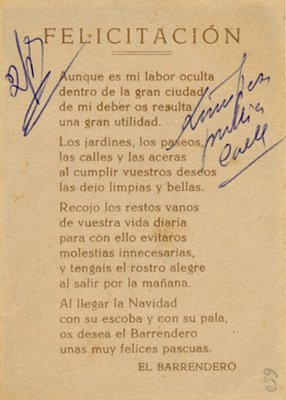 2/7
FELICITACIÓN
Aunque es mi labor oculta
dentro de la gran ciudad,
de mi deber os resulta
una gran utilidad.
Los jardines, los paseos,
las calles y las aceras
al cumplir vuestros deseos
las dejo limpias y bellas.
Recojo los restos vanos
de vuestra vida diaria
para con ello evitaros
molestias innecesarias,
y tengais el rostro alegre
al salir por la mañana.
Al llegar la Navidad
con su escoba y con su pala,
os desea el Barrendero
unas muy felices pascuas.
EL BARRENDERO